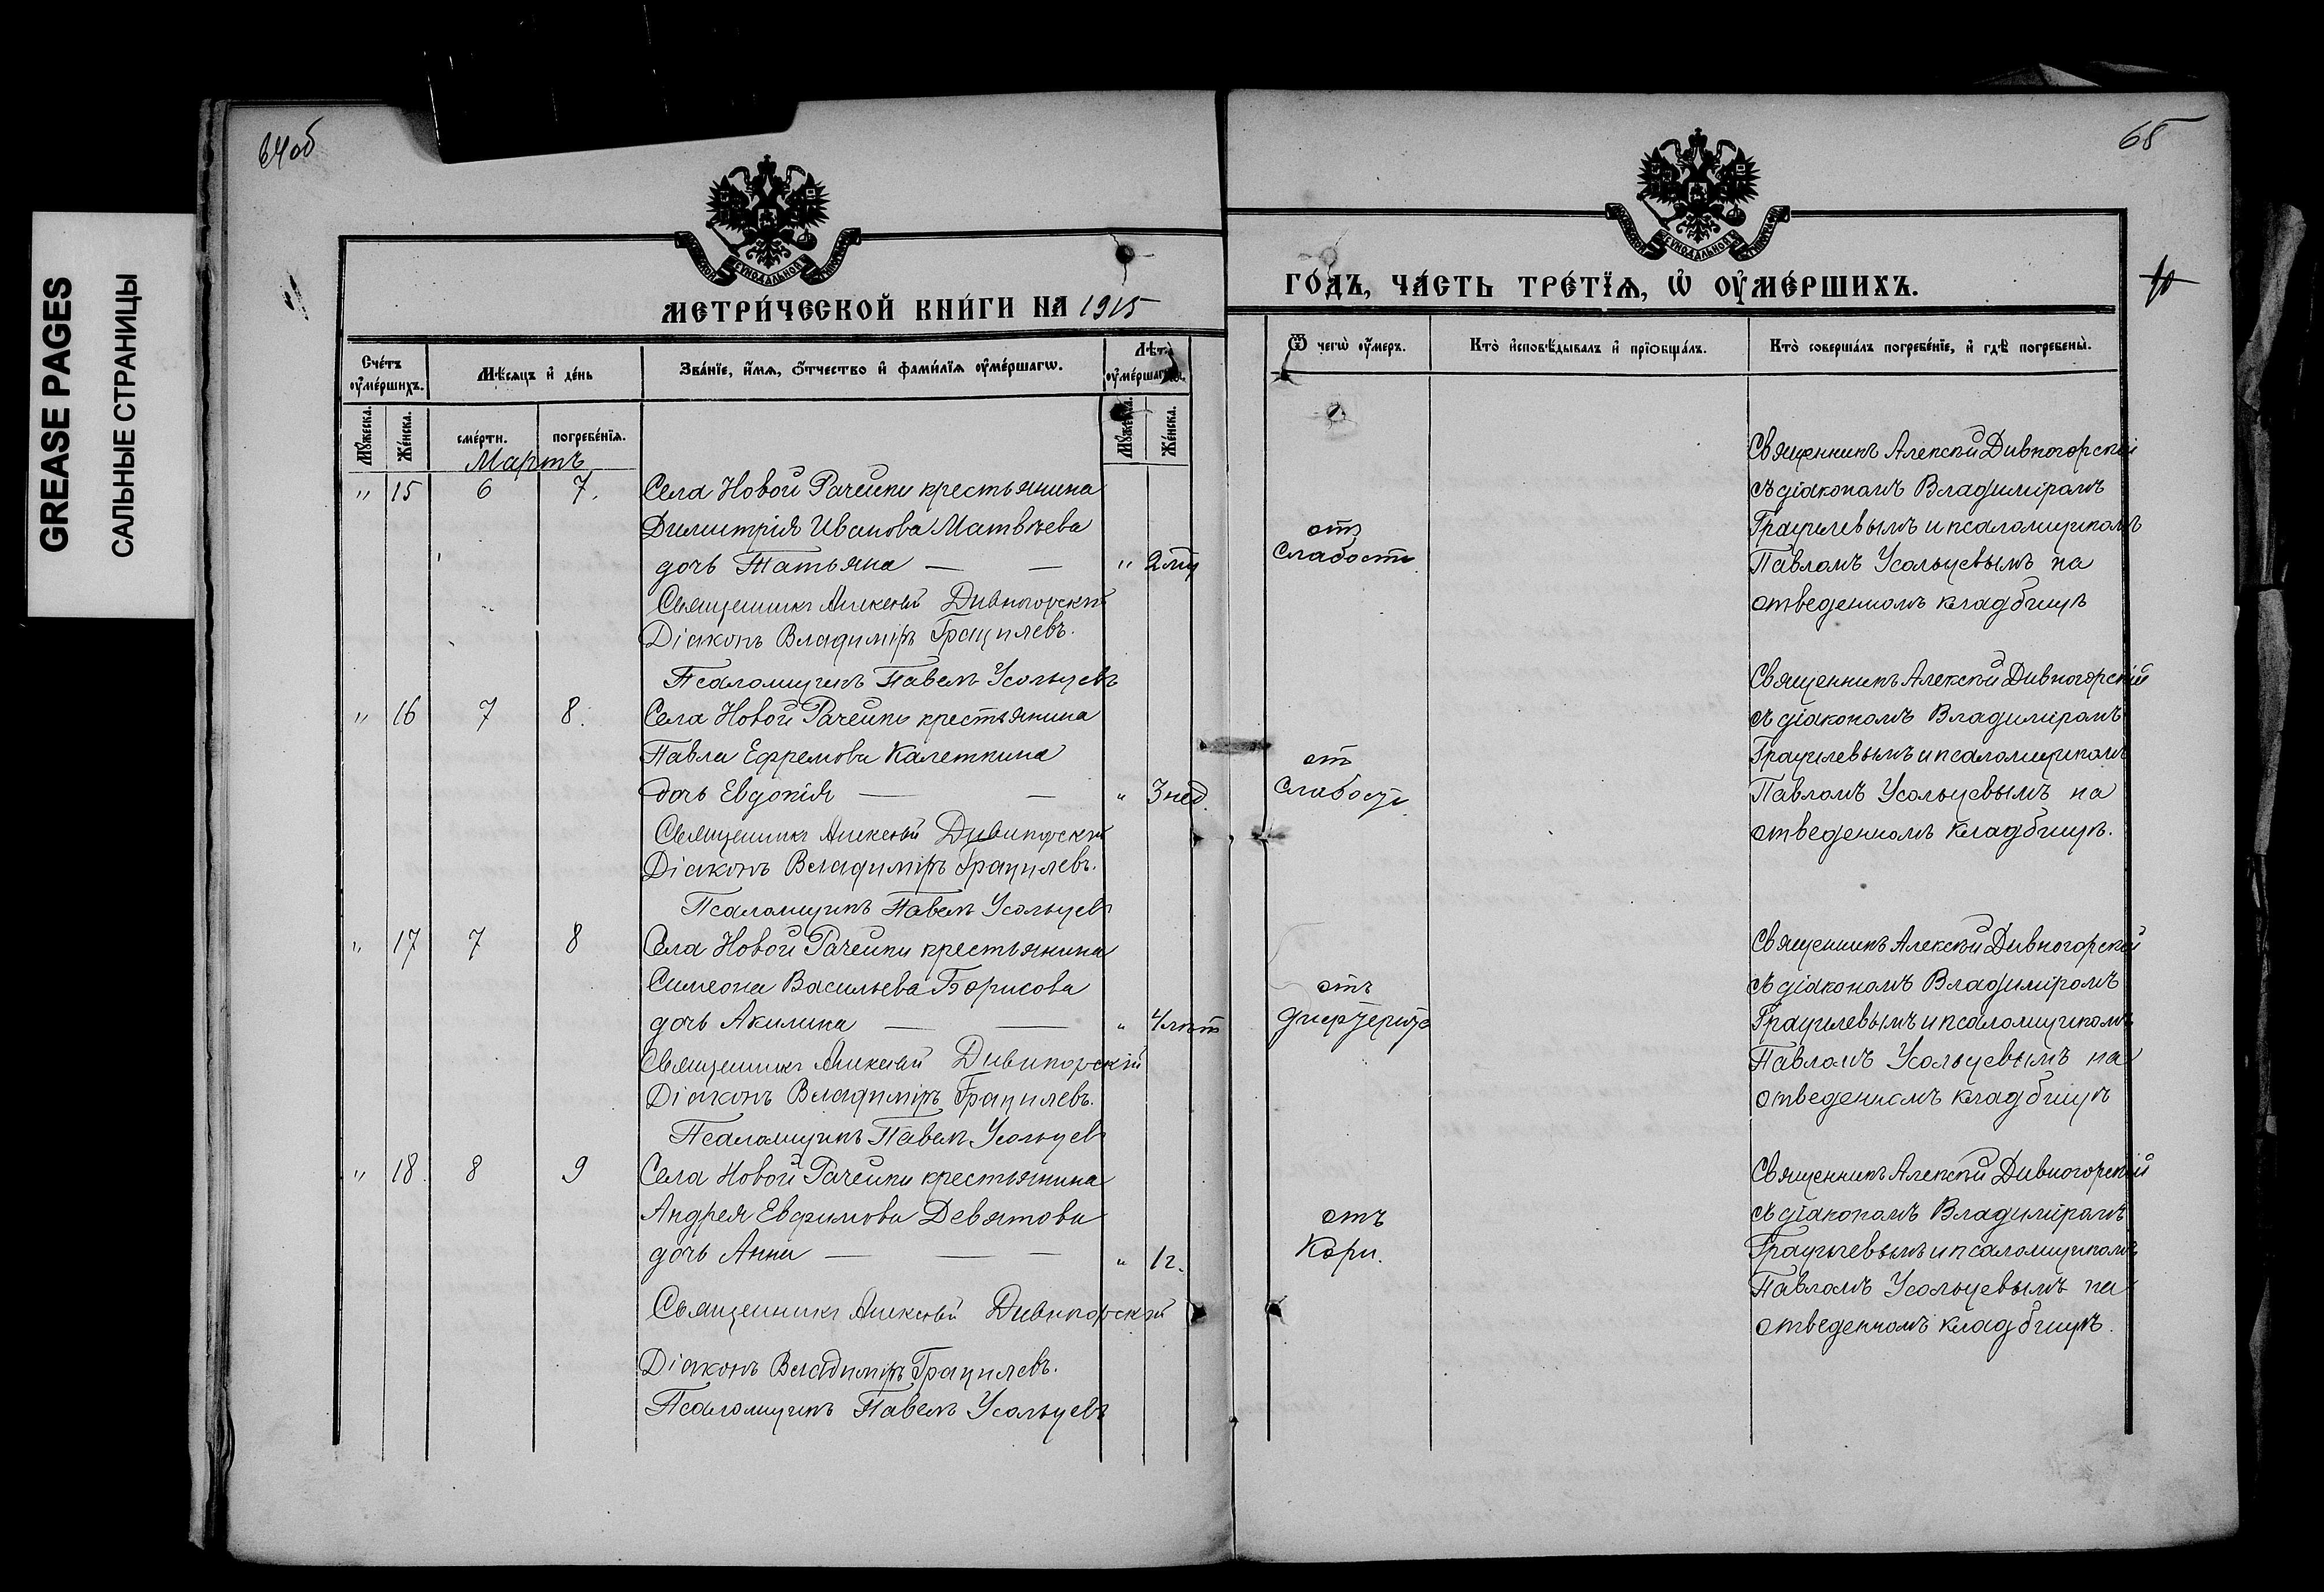 GREASE PAGES
САЛЬНЫЕ СТРАНИЦЫ
64об
МЕТРИ́ЧЕСКОЙ КНИ́ГИ НА 1915
Сче́тъ ᲂу҆ме́ршихъ.
Мѣ́сяцъ и҆ де́нь
Зва́нїе, и҆́мѧ, ѻ҆́тчество и҆ фами́лїѧ ᲂу҆ме́ршагѡ.
Лѣ́та ᲂу҆ме́ршагѡ.
Мꙋ́жеска.
Же́нска.
сме́рти.
погребе́нїѧ.
Мꙋ́жеска.
Же́нска.
Мартъ
" 15 6 7. Села Новой Рачейки крестьянина
Димитрія Иванова Матвѣева
дочь Татьяна — — " 2 мц
Священникъ Алексѣй Дивногорскій
Діаконъ Владиміръ Грацилевъ.
Псаломщикъ Павелъ Усольцевъ
" 16 7 8. Села Новой Рачейки крестьянина
Павла Ефремова Калеткина
дочь Евдокія — — " 3 нед.
Священникъ Алексѣй Дивногорскій
Діаконъ Владиміръ Грацилевъ.
Псаломщикъ Павелъ Усольцевъ
" 17 7 8 Села Новой Рачейки крестьянина
Симеона Васильева Борисова
дочь Акилина — — " 4 лѣт
Священникъ Алексѣй Дивногорскій
Діаконъ Владиміръ Грацилевъ.
Псаломщикъ Павелъ Усольцевъ
" 18. 8 9 Села Новой Рачейки крестьянина
Андрея Евфимова Девятова
дочь Анна — — — " 1 г.
Священникъ Алексѣй Дивногорскій
Діаконъ Владиміръ Грацилевъ.
Псаломщикъ Павелъ Усольцевъ
65
ГО́ДЪ, ЧА́СТЬ ТРЕ́ТЇѦ, Ѡ҆ ОУ҆МЕ́РШИХЪ.
Ѿ чегѡ̀ ᲂу҆́меръ.
Кто̀ и҆сповѣ́дывалъ и҆ прїѻбща́лъ.
Кто̀ соверша́лъ погребе́нїе, и҆ гдѣ̀ погребены̀.
отъ
слабости
Священникъ Алексѣй Дивногорскій
съ діакономъ Владиміромъ
Грацилевымъ и псаломщикомъ
Павломъ Усольцевымъ на
отведенномъ кладбищѣ
отъ
слабости.
Священникъ Алексѣй Дивногорскій
съ діакономъ Владиміромъ
Грацилевымъ и псаломщикомъ
Павломъ Усольцевымъ на
отведенномъ кладбищѣ.
отъ
дифтерита
Священникъ Алексѣй Дивногорскій
съ діакономъ Владиміромъ
Грацилевымъ и псаломщикомъ
Павломъ Усольцевымъ на
отведенномъ кладбищѣ
отъ
Кори.
Священникъ Алексѣй Дивногорскій
съ діакономъ Владиміромъ
Грацилевымъ и псаломщикомъ
Павломъ Усольцевымъ на
отведенномъ кладбищѣ.